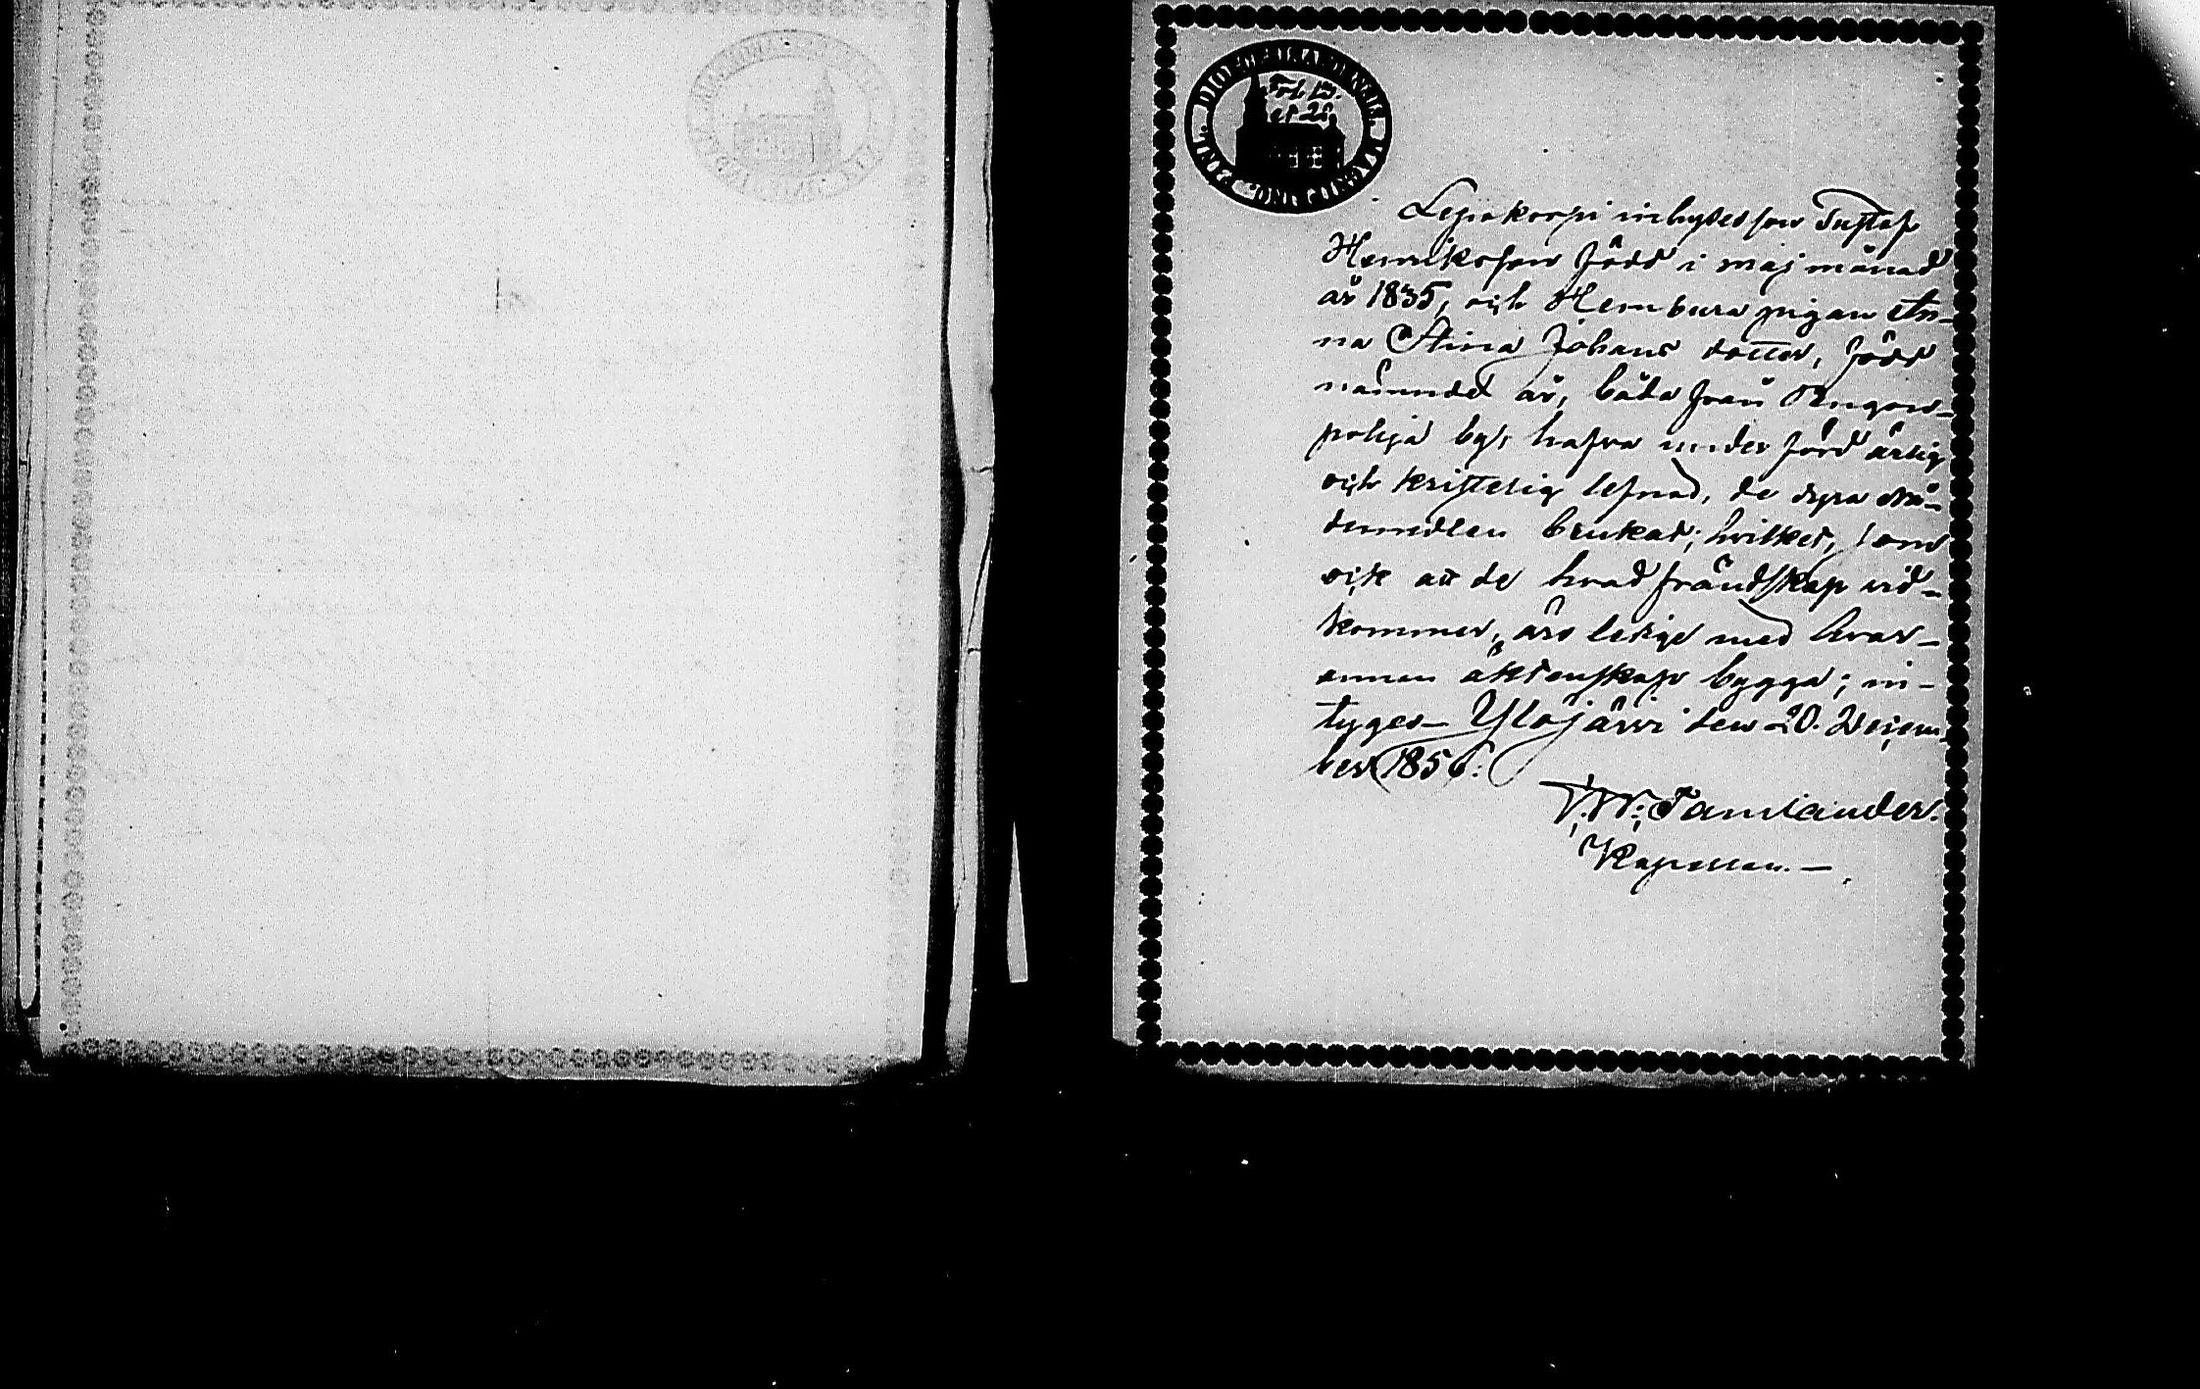 Fol. 13.
et 28.
Lepokorpi inhyses son Gustaf
Henriksson född i maj månad
år 1835, och Hembura pigan An-
na Stina Johans dotter, född
nämndet år, båda från Pengon-
pohja by, hafva under förd ärlig
och kristelig lefnad, de dyra Nå-
demedlen brukat; hvilket, som
ock att de hvad frändskap vid-
kommer, äro ledige med hvar-
annan äktenskap bygga; in-
tyges Ylöjärvi den 20. Decem-
ber 1856.
Tamlander.
Kapellan.